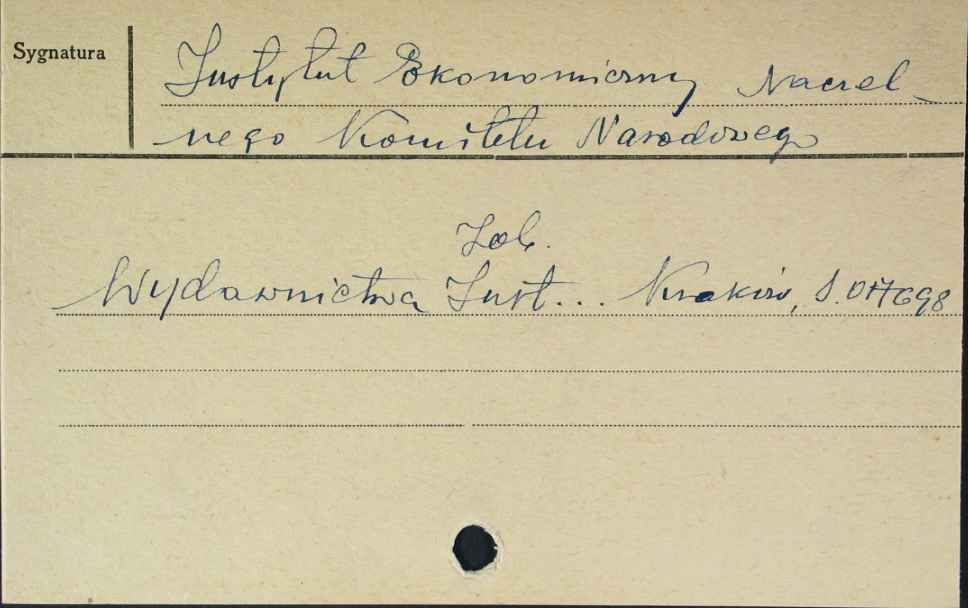 Sygnatura
Instytut Ekonomiczny Naczel-
nego Komitetu Narodowego
Zob.
Wydawnictwa Inst... Kraków,